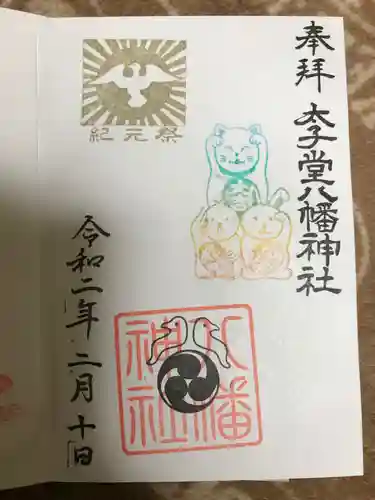 奉拝
太子堂八幡神社
紀元祭
八幡
神社
令和二年二月十日